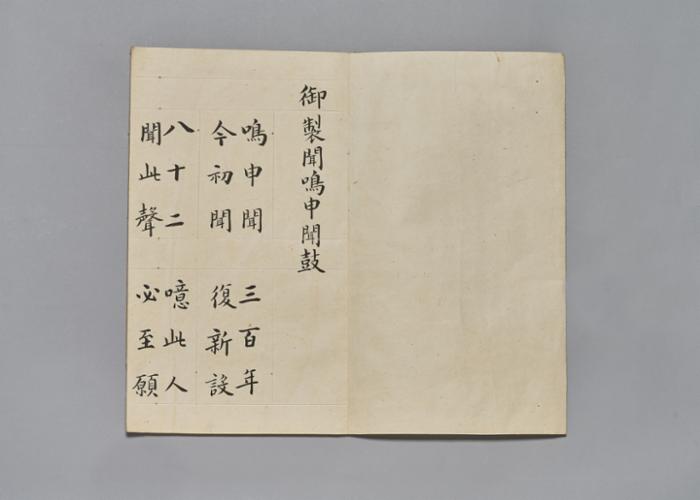 御製聞鳴申聞鼓
鳴申聞 三百年
今初聞 復新設
八十二 噫此人
聞此聲 必至願